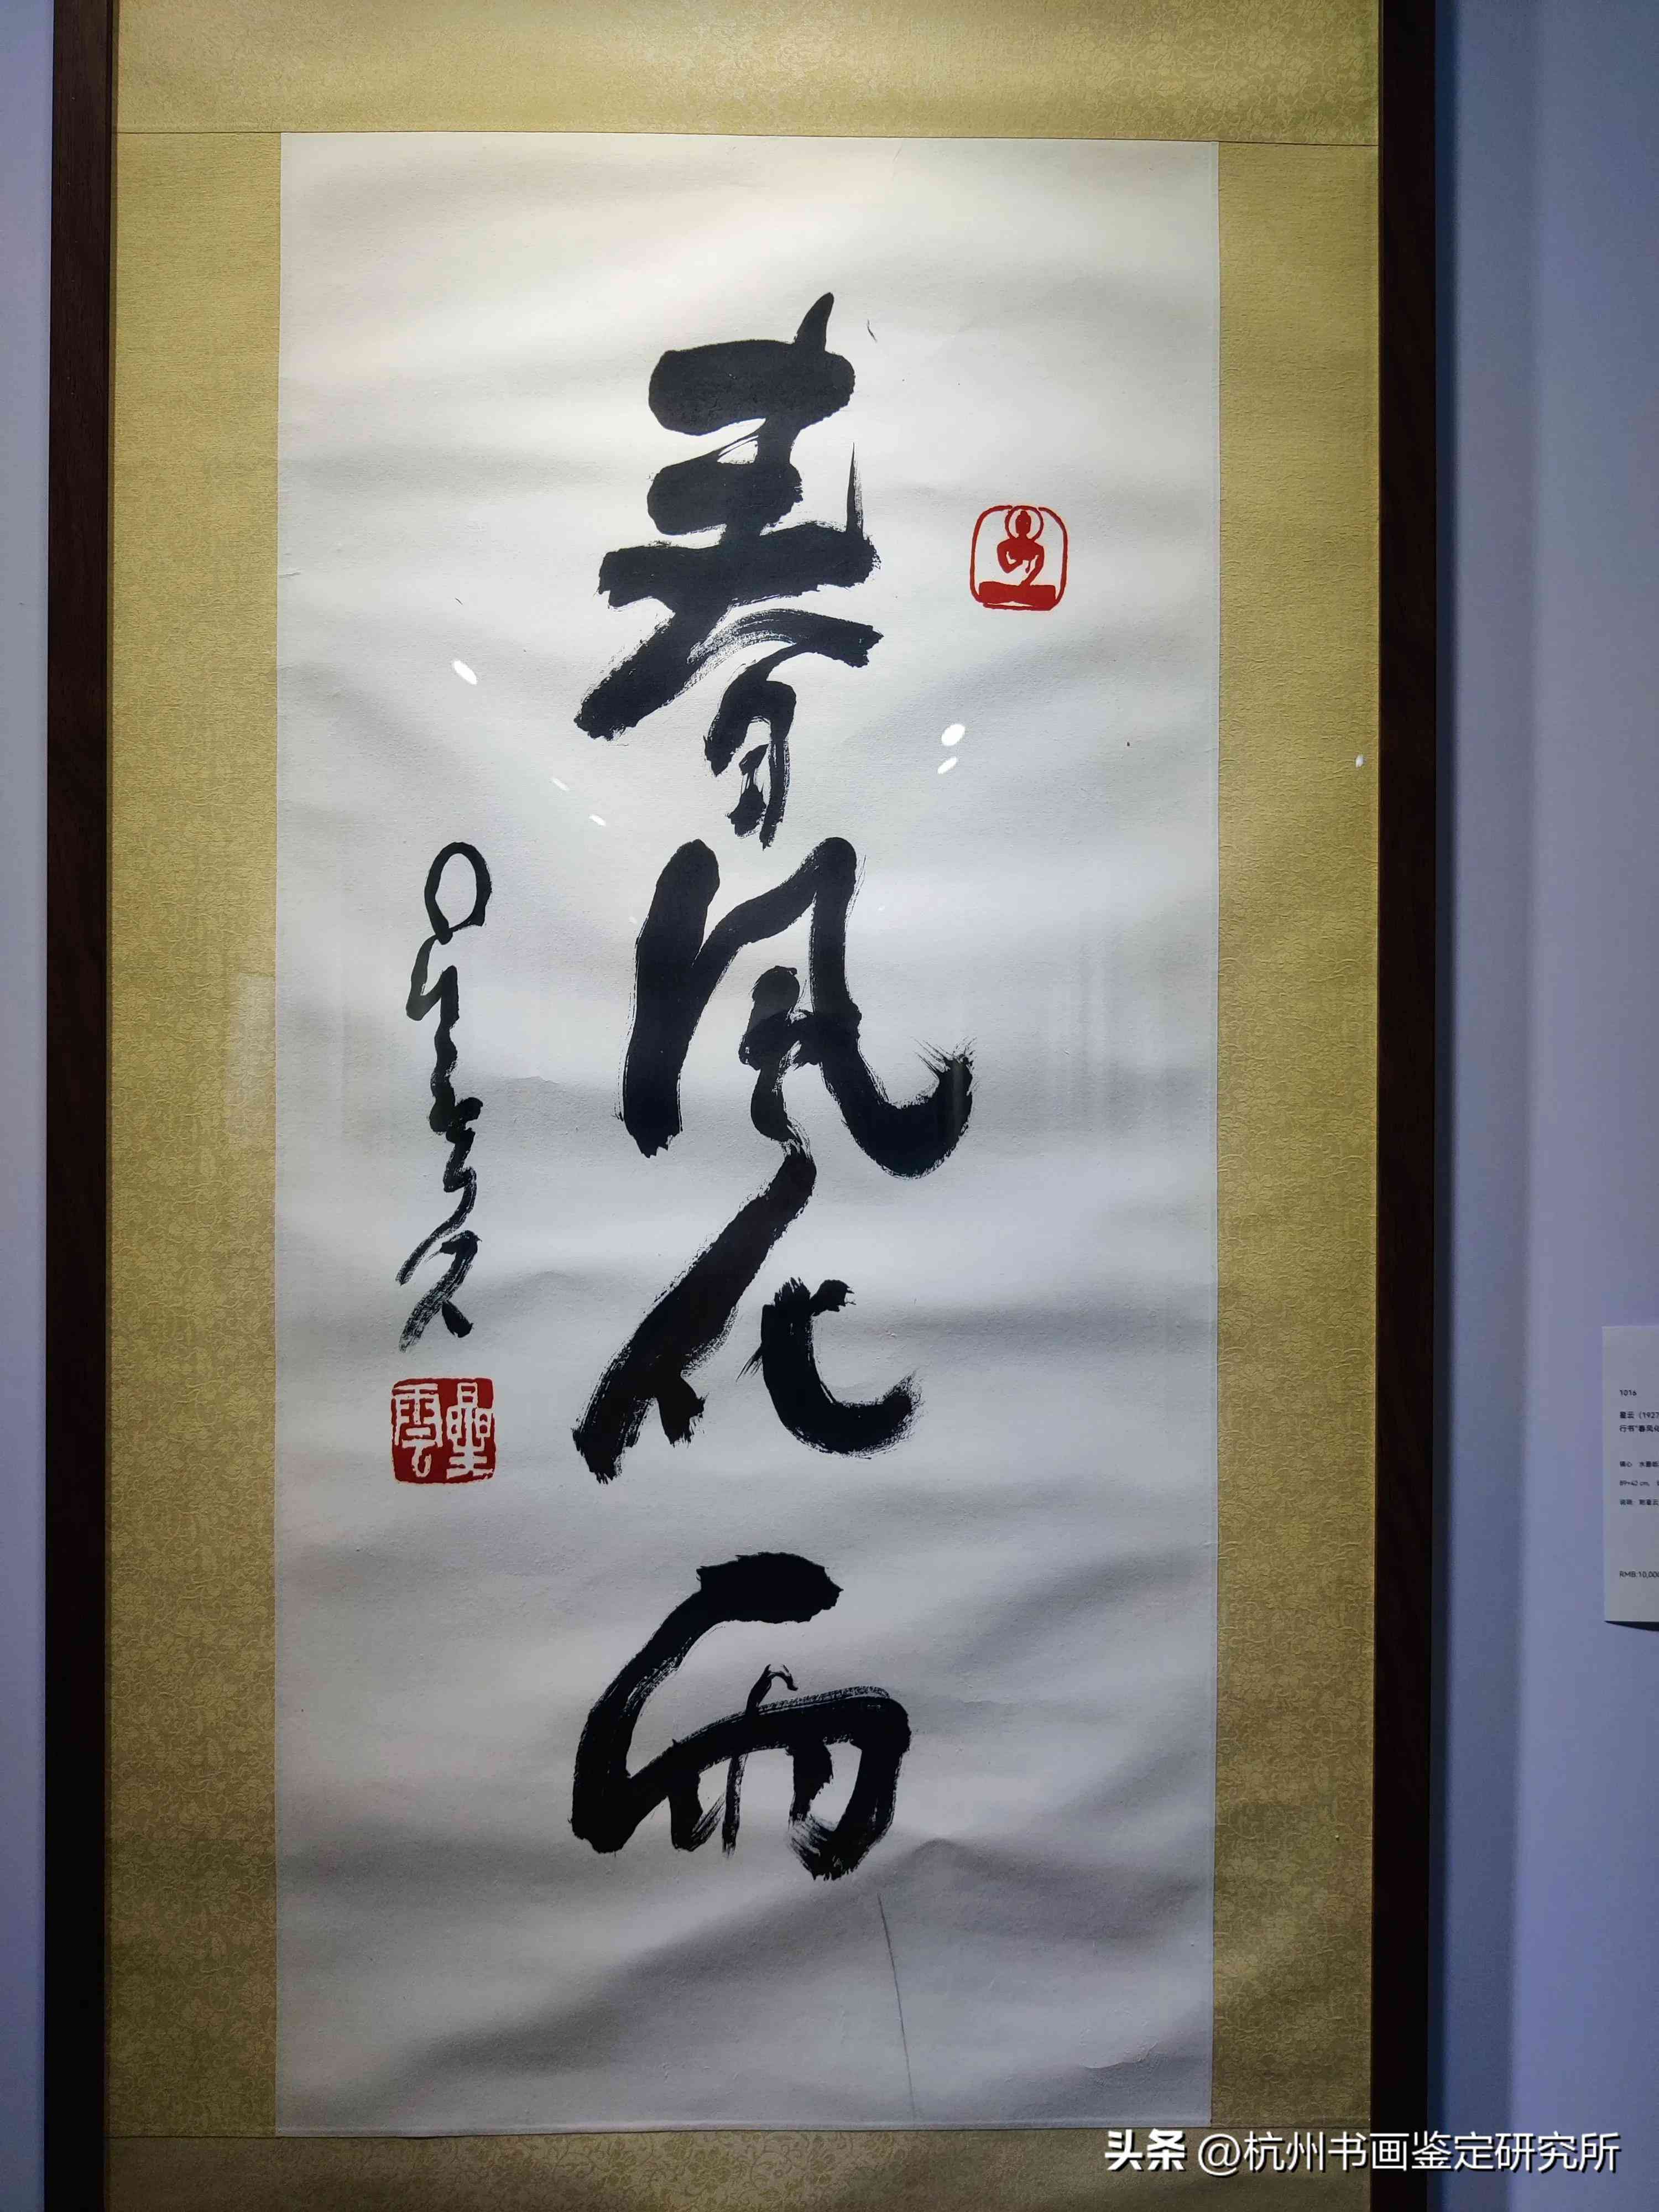 春风化雨
星云
星雲
1016
星云（1927
行书"春风化
镜心 水墨纸
89×42 cm.
RMB:10,000
头条 @杭州书画鉴定研究所